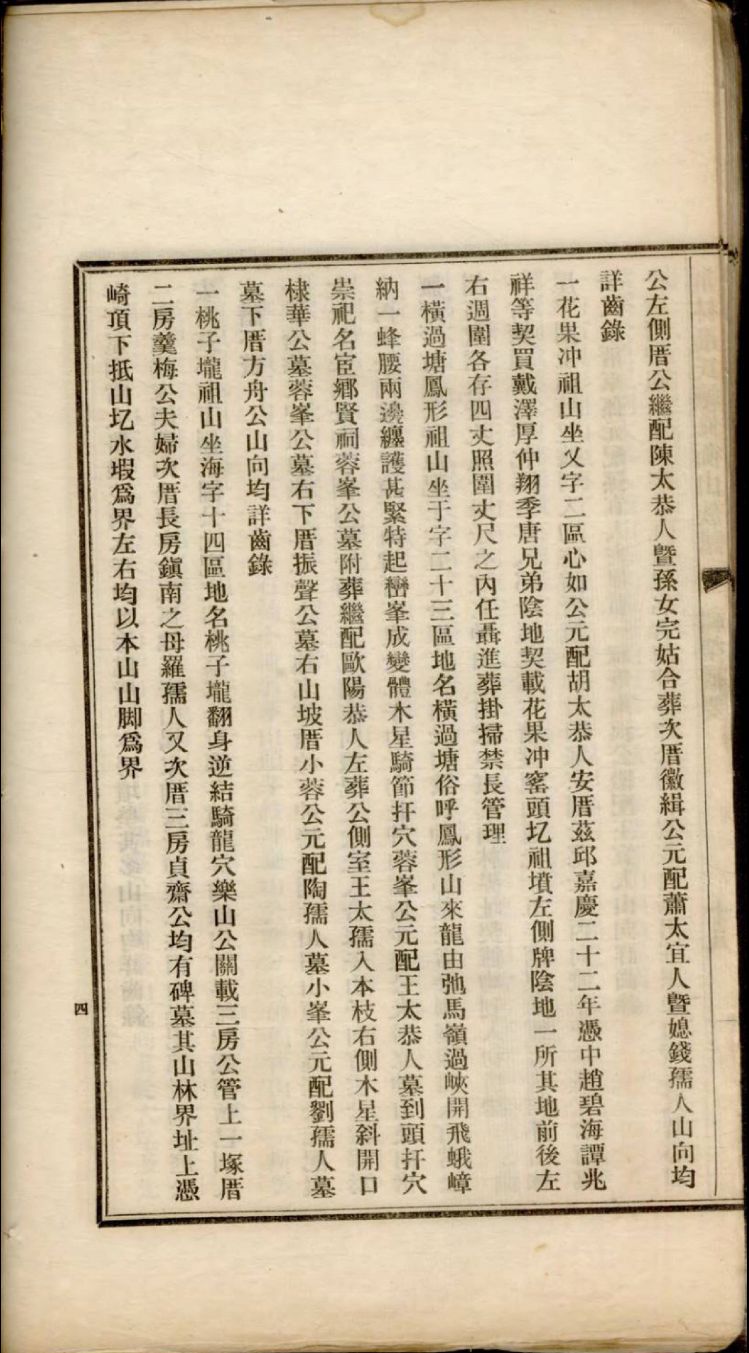 公左側厝公繼配陳太恭人暨孫女完姑合葬次厝徽緝公元配蕭太宜人暨媳錢孺人山向均
詳齒錄
一花果冲祖山坐乂字二區心如公元配胡太恭人安厝茲邱嘉慶二十二年憑中趙碧海譚兆
祥等契買戴澤厚仲翔季唐兄弟陰地契載花果冲窰頭圪祖墳左側牌陰地一所其地前後左
右週圍各存四丈照圍丈尺之內任聶進葬掛掃禁長管理
一橫過塘鳳形祖山坐于字二十三區地名橫過塘俗呼鳳形山來龍由弛馬嶺過峽開飛蛾嶂
納一蜂腰兩邊纏護甚緊特起巒峯成變體木星騎節扦穴蓉峯公元配王太恭人墓到頭扦穴
崇祀名宦鄉賢祠蓉峯公墓附葬繼配歐陽恭人左葬公側室王太孺入本枝右側木星斜開口
棣華公墓蓉峯公墓右下厝振聲公墓右山坡厝小蓉公元配陶孺人墓小峯公元配劉孺人墓
墓下厝方舟公山向均詳齒錄
一桃子壠祖山坐海字十四區地名桃子壠翻身逆結騎龍穴樂山公關載三房公管上一塚厝
二房羹梅公夫婦次厝長房鎭南之母羅孺人又次厝三房貞齋公均有碑墓其山林界址上憑
崎項下抵山圪水塅爲界左右均以本山山脚爲界
四